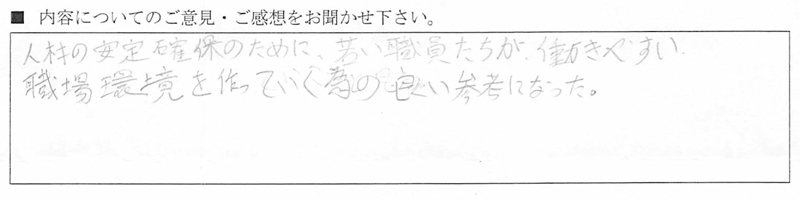 ■ 内容についてのご意見・ご感想をお聞かせ下さい。
人材の安定確保のために、若い職員たちが、働きやすい
職場環境を作っていく為の良い参考になった。